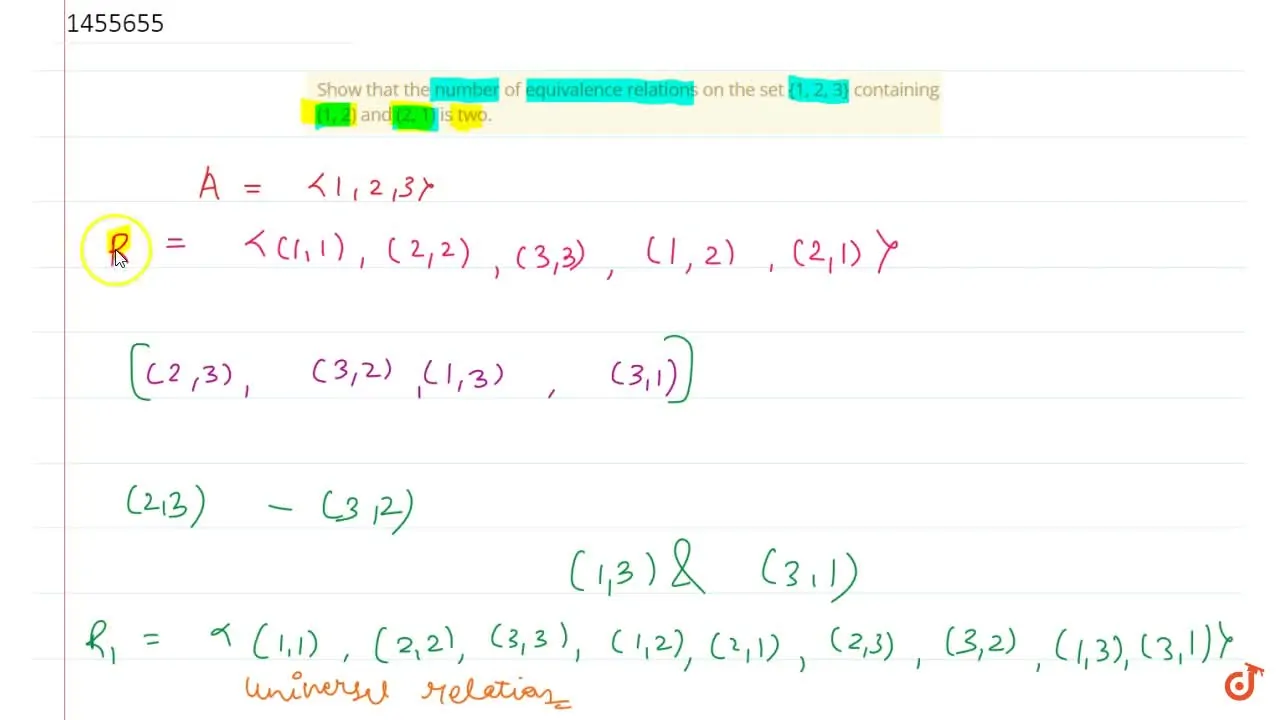 1455655
Show that the number of equivalence relations on the set {1, 2, 3} containing
(1, 2) and (2, 1) is two.
A = {1, 2, 3}
R = {(1,1), (2,2), (3,3), (1,2), (2,1)}
[(2,3), (3,2), (1,3), (3,1)]
(2,3) - (3,2)
(1,3) & (3,1)
R₁ = {(1,1), (2,2), (3,3), (1,2), (2,1), (2,3), (3,2), (1,3), (3,1)}
universal relation